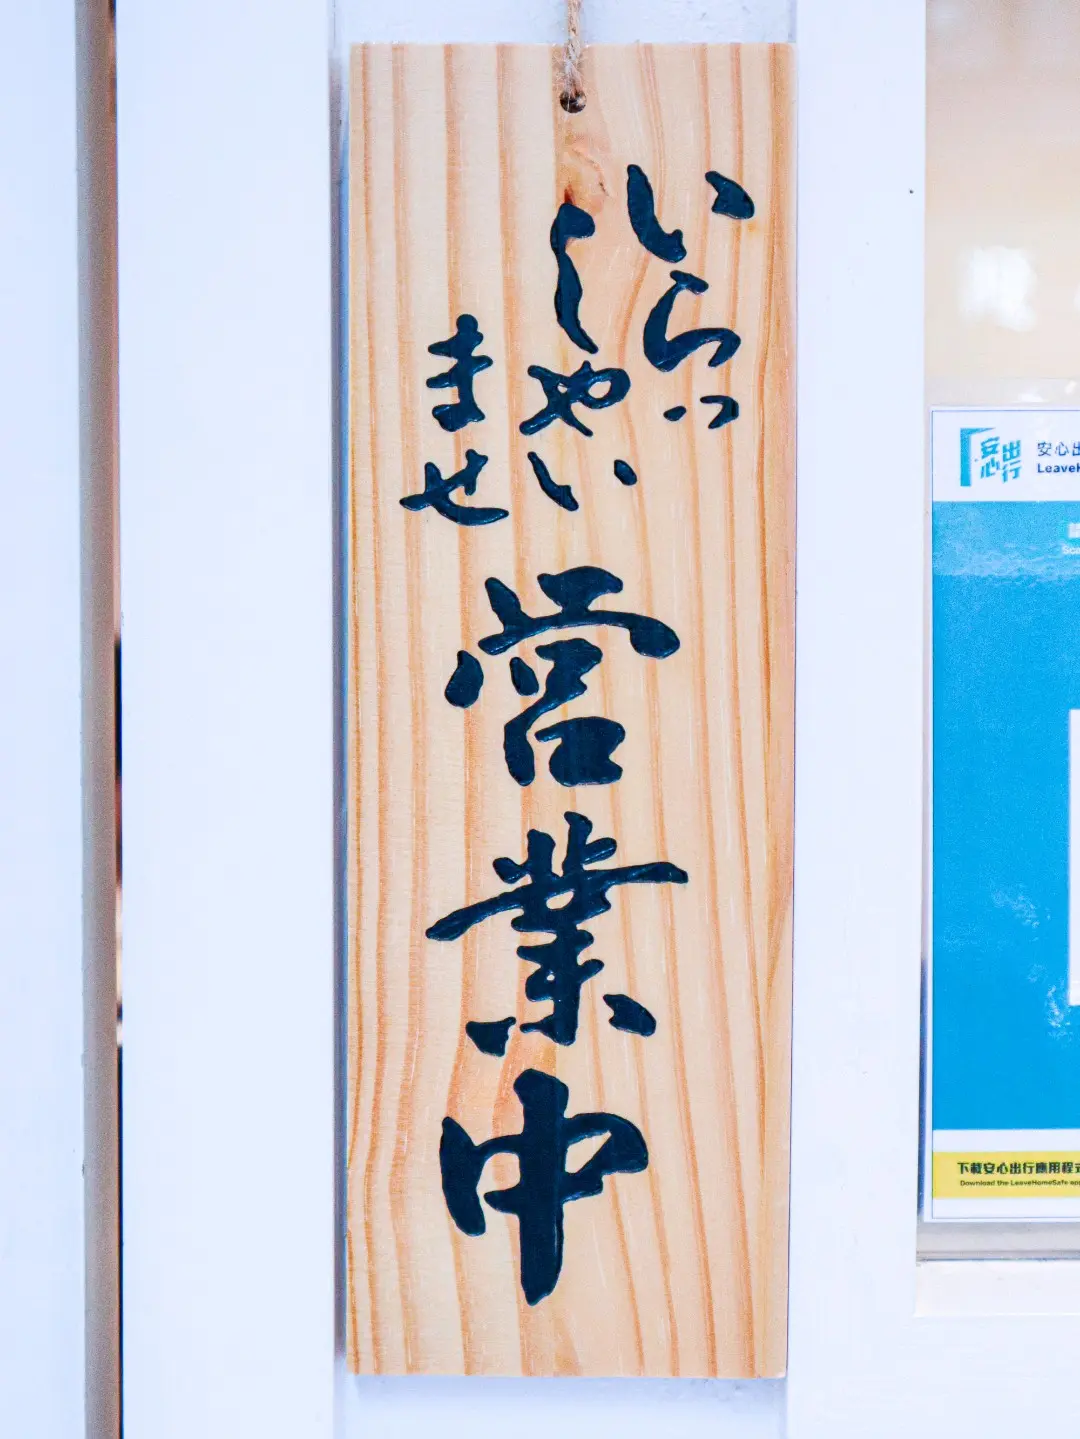 いらっ
しゃい
ませ
営業中
安心出行
安心出
LeaveH
下載安心出行應用程式
Download the LeaveHomeSafe app